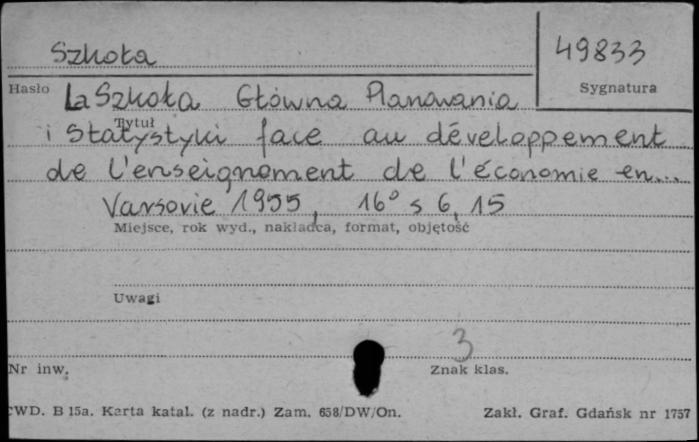 Szkoła
49833
Hasło
Sygnatura
La Szkoła Główna Planowania
Tytuł
i Statystyki face au développement
de l'enseignement de l'économie en...
Varsovie 1955, 16° s 6, 15
Miejsce, rok wyd., nakładca, format, objętość
Uwagi
3
Nr inw.
Znak klas.
CWD. B 15a. Karta katal. (z nadr.) Zam. 658/DW/On.
Zakł. Graf. Gdańsk nr 1757